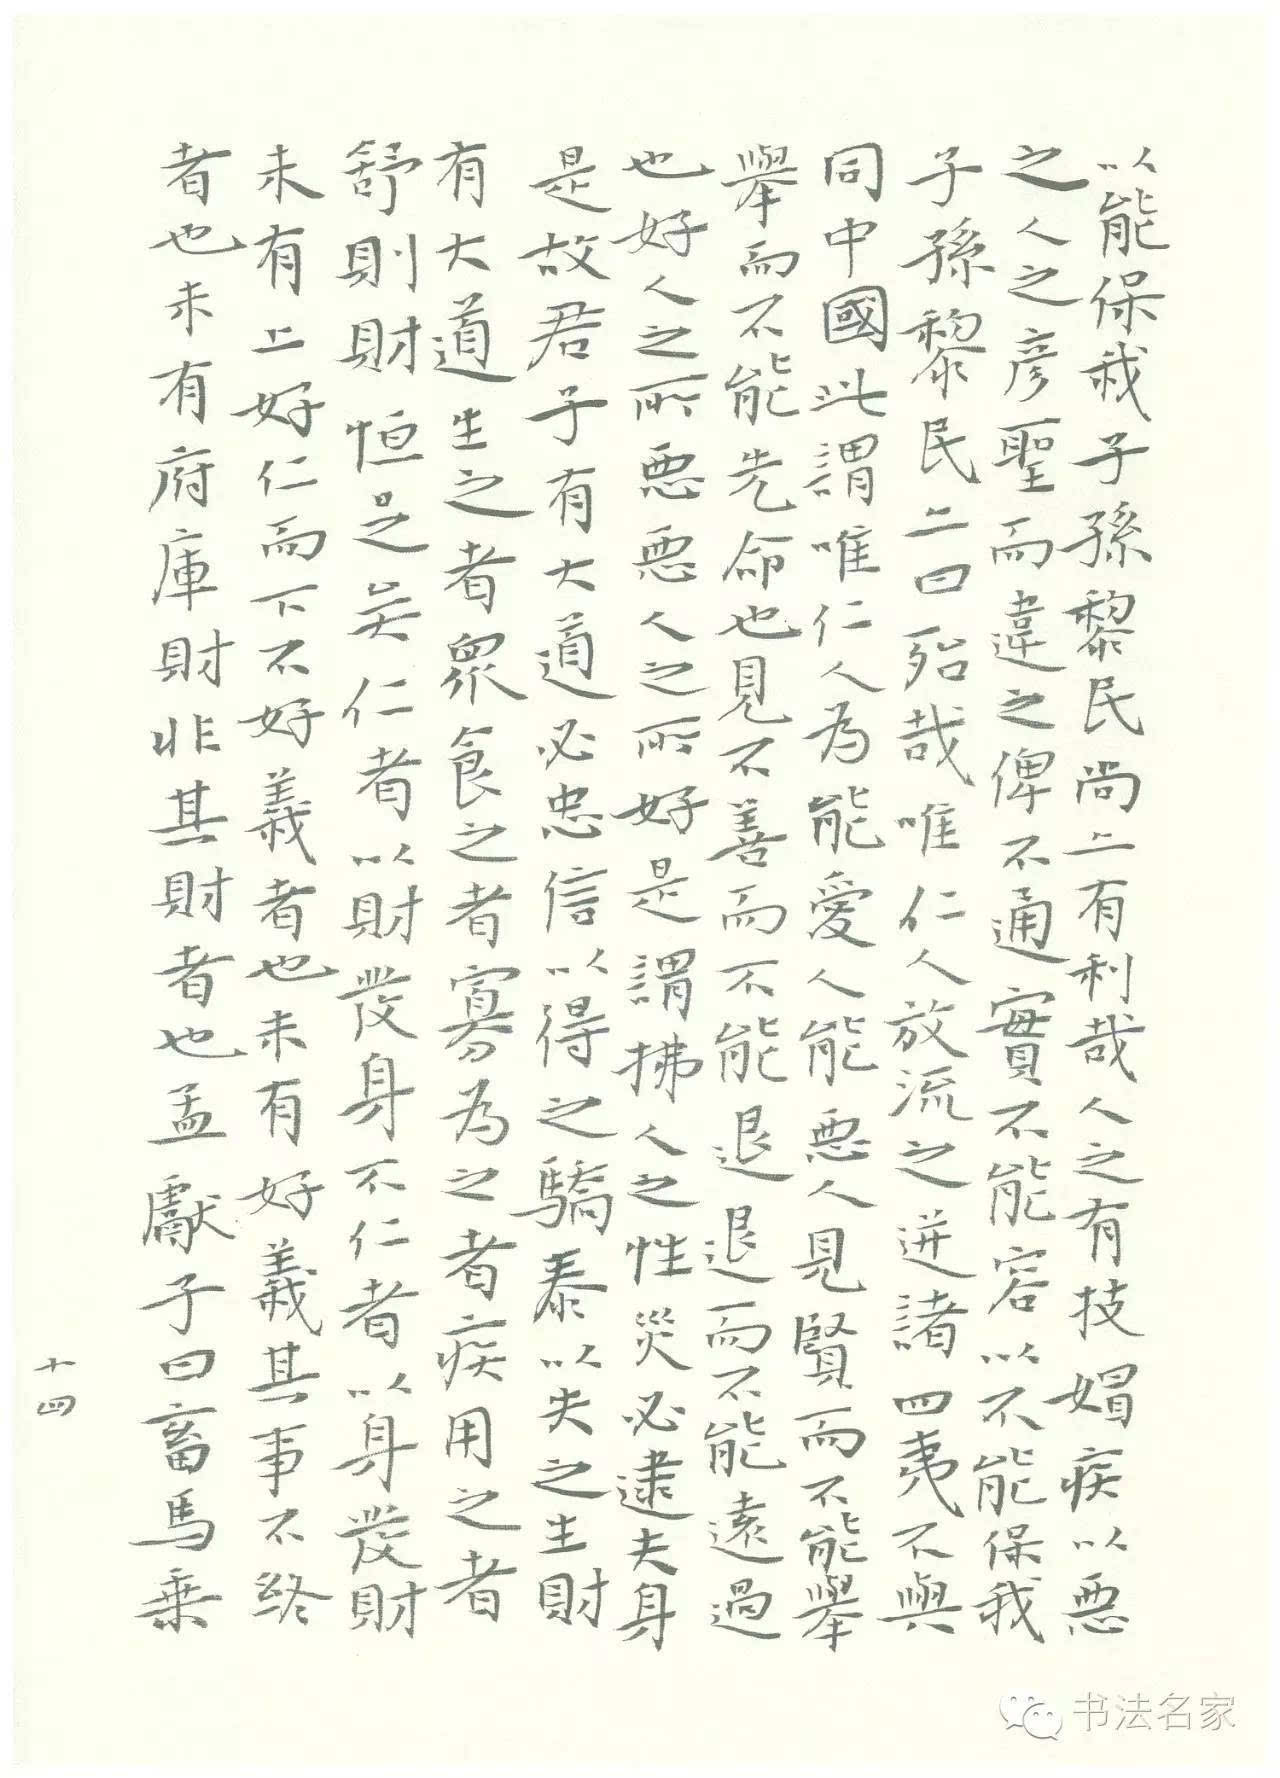 以能保我子孫黎民尚亦有利哉人之有技媢疾以惡
之人之彥聖而違之俾不通實不能容以不能保我
子孫黎民亦曰殆哉唯仁人放流之迸諸四夷不與
同中國此謂唯仁人為能愛人能惡人見賢而不能舉
舉而不能先命也見不善而不能退退而不能遠過
也好人之所惡惡人之所好是謂拂人之性災必逮夫身
是故君子有大道必忠信以得之驕泰以失之生財
有大道生之者眾食之者寡為之者疾用之者
舒則財恒足矣仁者以財發身不仁者以身發財
未有上好仁而下不好義者也未有好義其事不終
者也未有府庫財非其財者也孟獻子曰畜馬乘
十四
书法名家